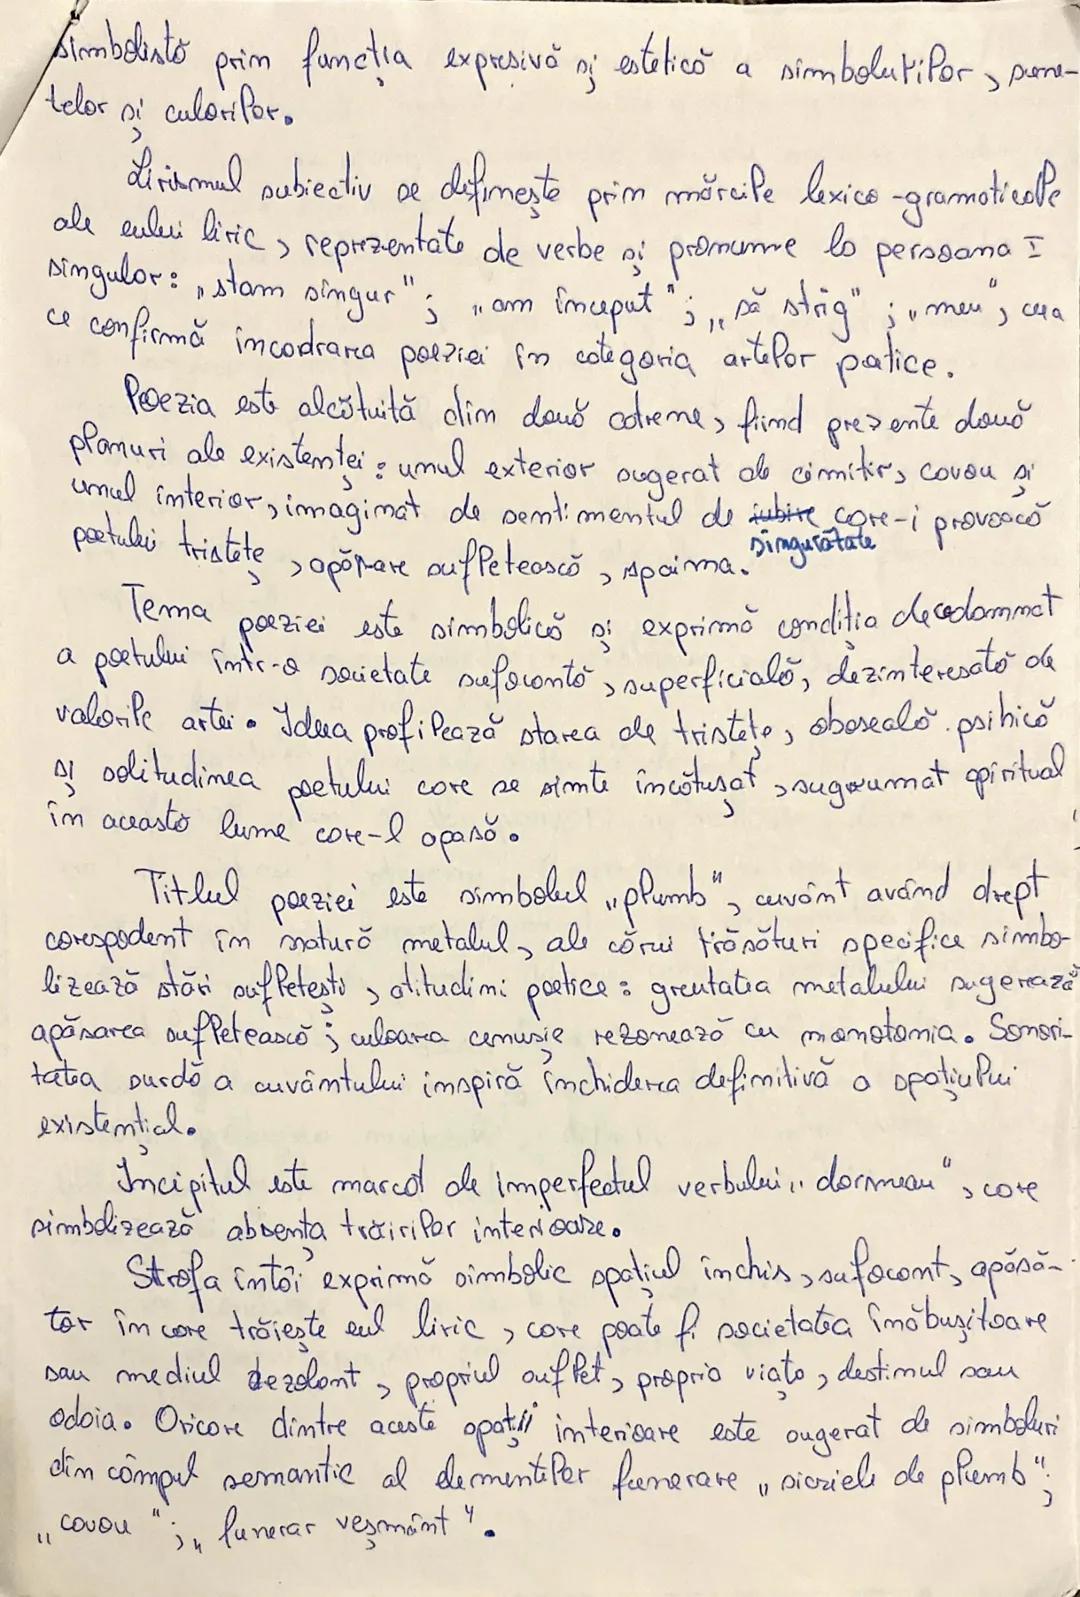 simbolistă prim funcția expresivă și estetică a simbolurilor, sune-
telor și culorilor.
Lirismul subiectiv se definește prin mărcile lexico-gramaticale
ale eului liric, reprezentate de verbe și pronume la persoana I
singular: „stam singur"; „am început"; „să strig"; „meu", ceea
ce confirmă încadrarea poeziei în categoria artelor poetice.
Poezia este alcătuită din două catrene, fiind prezente două
planuri ale existenței: unul exterior sugerat de cimitir, cavou și
unul interior, imaginat de sentimentul de iubire care-i provoacă
singurătate
poetului tristețe, apăsare sufletească, spaima.
Tema poeziei este simbolică și exprimă condiția de
a poetului într-o societate sufocantă, superficială, dezinteresată de
valorile artei. Ideea profilează starea de tristețe, oboseală psihică
și solitudinea poetului care se simte încătușat, sugrumat spiritual
în această lume care-l apasă.
Titlul poeziei este simbolul „plumb", cuvânt având drept
corespodent în natură metalul, ale cărui trăsături specifice simbo-
lizează stări sufletești, atitudini poetice: greutatea metalului sugerează
apăsarea sufletească; culoarea cenușie rezonează cu monotonia. Sonori-
tatea surdă a cuvântului inspiră închiderea definitivă a spațiului
existențial.
Incipitul este marcat de imperfectul verbului „dormeau", care
simbolizează absența trăirilor interioare.
Strofa întâi exprimă simbolic spațiul închis, sufocant, apăsă-
tor în care trăiește eul liric, care poate fi societatea înăbușitoare
sau mediul dezolant, propriul suflet, propria viață, destinul sau
odaia. Oricare dintre aceste spații interioare este sugerat de simboluri
din câmpul semantic al elementelor funerare „sicriele de plumb";
„cavou"; „funerar veșmânt".